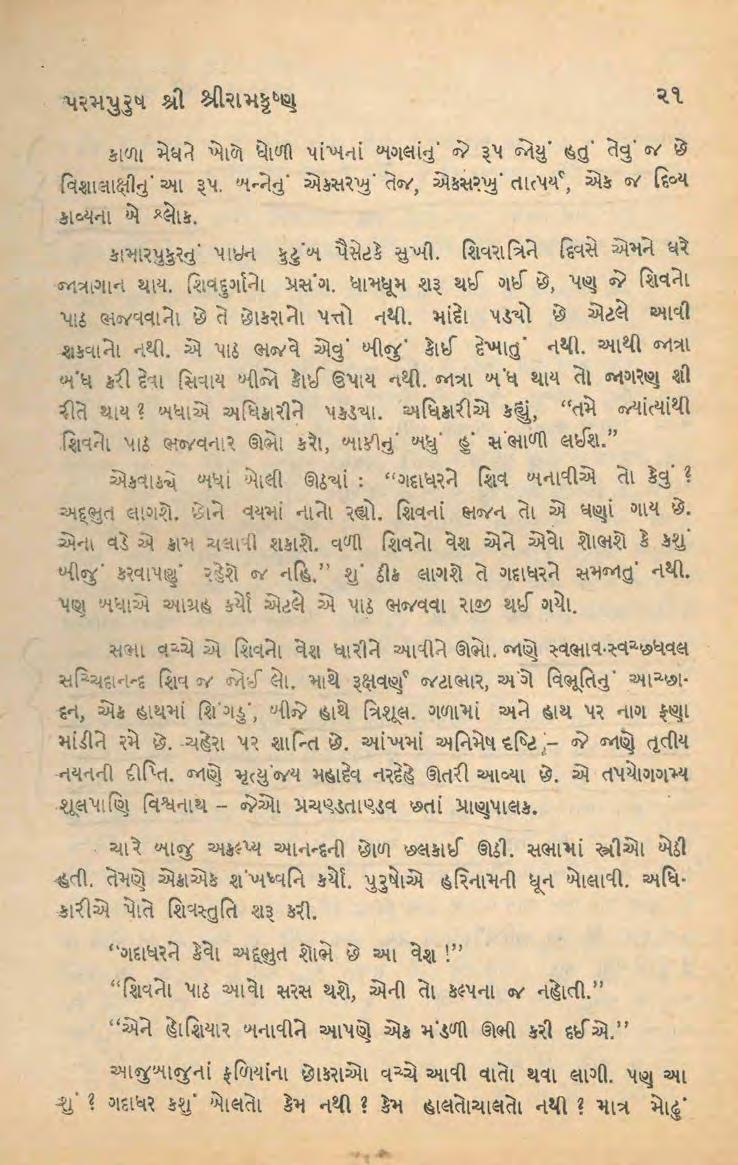 પરમપુરુષ શ્રી શ્રીરામકૃષ્ણ ૨૧
કાળા મેઘને ખોળે ધોળી પાંખનાં બગલાંનું જે રૂપ જોયું હતું તેવું જ છે
વિશાલાક્ષીનું આ રૂપ. બન્નેનું એકસરખું તેજ, એકસરખું તાત્પર્ય, એક જ દિવ્ય
કાવ્યના બે શ્લોક.
કામારપુકુરનું પાઇન કુટુંબ પૈસેટકે સુખી. શિવરાત્રિને દિવસે એમને ઘરે
જાત્રાગાન થાય. શિવદુર્ગાનો પ્રસંગ. ધામધૂમ શરૂ થઈ ગઈ છે, પણ જે શિવનો
પાઠ ભજવવાનો છે તે છોકરાનો પત્તો નથી. માંદો પડ્યો છે એટલે આવી
શકવાનો નથી. એ પાઠ ભજવે એવું બીજું કોઈ દેખાતું નથી. આથી જાત્રા
બંધ કરી દેવા સિવાય બીજો કોઈ ઉપાય નથી. જાત્રા બંધ થાય તો જાગરણ શી
રીતે થાય ? બધાએ અધિકારીને પકડ્યા. અધિકારીએ કહ્યું, “તમે જ્યાંત્યાંથી
શિવનો પાઠ ભજવનાર ઊભો કરો, બાકીનું બધું હું સંભાળી લઈશ.”
એકવાક્યે બધાં બોલી ઊઠ્યાં : “ગદાધરને શિવ બનાવીએ તો કેવું ?
અદ્ભુત લાગશે. છોને વયમાં નાનો રહ્યો. શિવનાં ભજન તો એ ઘણાં ગાય છે.
એના વડે એ કામ ચલાવી શકાશે. વળી શિવનો વેશ એને એવો શોભશે કે કશું
બીજું કરવાપણું રહેશે જ નહિ.” શું ઠીક લાગશે તે ગદાધરને સમજાતું નથી.
પણ બધાએ આગ્રહ કર્યો એટલે એ પાઠ ભજવવા રાજી થઈ ગયો.
સભા વચ્ચે એ શિવનો વેશ ધારીને આવીને ઊભો. જાણે સ્વભાવ-સ્વચ્છધવલ
સચ્ચિદાનન્દ શિવ જ જોઈ લો. માથે રૂક્ષવર્ણ જટાભાર, અંગે વિભૂતિનું આચ્છા-
દન, એક હાથમાં શિંગડું, બીજે હાથે ત્રિશૂલ. ગળામાં અને હાથ પર નાગ ફણા
માંડીને રમે છે. ચહેરા પર શાન્તિ છે. આંખમાં અનિમેષ દષ્ટિ,– જે જાણે તૃતીય
નયનની દીપ્તિ. જાણે મૃત્યુંજય મહાદેવ નરદેહે ઊતરી આવ્યા છે. એ તપયોગગમ્ય
શૂલપાણિ વિશ્વનાથ – જેઓ પ્રચણ્ડતાણ્ડવ છતાં પ્રાણપાલક.
ચારે બાજુ અકલ્પ્ય આનન્દની છોળ છલકાઈ ઊઠી. સભામાં સ્ત્રીઓ બેઠી
હતી. તેમણે એકાએક શંખધ્વનિ કર્યો. પુરુષોએ હરિનામની ધૂન બોલાવી. અધિ-
કારીએ પોતે શિવસ્તુતિ શરૂ કરી.
“ગદાધરને કેવો અદ્ભુત શોભે છે આ વેશ !”
“શિવનો પાઠ આવો સરસ થશે, એની તો કલ્પના જ નહોતી.”
“એને હોશિયાર બનાવીને આપણે એક મંડળી ઊભી કરી દઈએ.”
આજુબાજુનાં ફળિયાંના છોકરાઓ વચ્ચે આવી વાતો થવા લાગી. પણ આ
શું ? ગદાધર કશું બોલતો કેમ નથી ? કેમ હાલતોચાલતો નથી ? માત્ર મોઢું